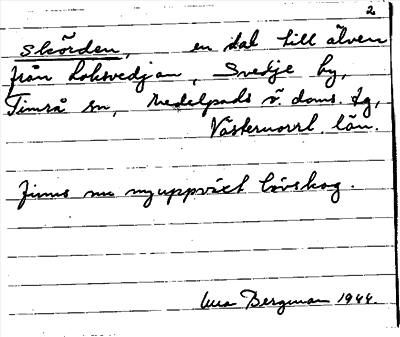 2
Skörden, en dal till älven
från Loksvedjan, Svedje by,
Timrå sn, Medelpads ö. doms. tg,
Västernorrl. län.
Finns nu nyuppväxt lövskog.
Bergman 1944.